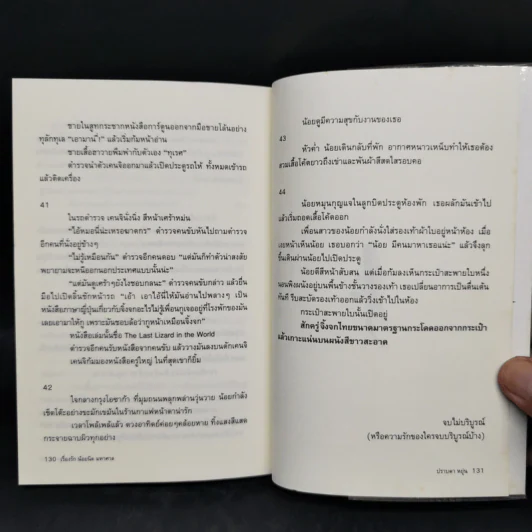 ชายในสูทกระชากหนังสือการ์ตูนออกจากมือชายโล้นอย่าง
ทุลักทุเล "เอามานี่" แล้วเริ่มก้มหน้าอ่าน
ชายเสื้อฮาวายพึมพำกับตัวเอง "ทุเรศ"
ตำรวจนำตัวเคนจิออกมาแล้วเปิดประตูรถให้ ทั้งหมดเข้ารถ
แล้วติดเครื่อง
41
ในรถตำรวจ เคนจินั่งนิ่ง สีหน้าเศร้าหม่น
"ไอ้หมอนี่น่ะเหรอฆาตกร" ตำรวจคนขับหันไปถามตำรวจ
อีกคนที่นั่งอยู่ข้างๆ
"ไม่รู้เหมือนกัน" ตำรวจอีกคนตอบ "แต่มันก็ทำตัวน่าสงสัย
พยายามจะหนีออกนอกประเทศแบบนั้นน่ะ"
"แต่มันดูเศร้าๆยังไงชอบกลนะ" ตำรวจคนขับกล่าว แล้วยื่น
มือไปเปิดลิ้นชักหน้ารถ "เอ้า เอาไอ้นี่ให้มันอ่านไปพลางๆ เป็น
หนังสือภาษาญี่ปุ่นเกี่ยวกับจิ้งจกอะไรไม่รู้เพื่อนกูเจออยู่ที่โรงพักของมัน
เลยเอามาให้กู เพราะมันชอบล้อว่ากูหน้าเหมือนจิ้งจก"
หนังสือเล่มนั้นชื่อ The Last Lizard in the World
ตำรวจอีกคนรับหนังสือจากคนขับ แล้ววางมันลงบนตักเคนจิ
เคนจิก้มมองหนังสือครู่ใหญ่ ในที่สุดเขาก็ยิ้ม
42
ใจกลางกรุงโอซาก้า ที่มุมถนนพลุกพล่านวุ่นวาย น้อยกำลัง
เช็ดโต๊ะอย่างขะมักเขม้นในร้านกาแฟหน้าตาน่ารัก
เวลาโพล้เพล้แล้ว ดวงอาทิตย์ค่อยๆคล้อยหาย ทิ้งแสงสีแสด
กระจายฉาบผิวทุกอย่าง
130 เรื่องรัก น้อยนิด มหาศาล
น้อยดูมีความสุขกับงานของเธอ
43
หัวค่ำ น้อยเดินกลับที่พัก อากาศหนาวเหน็บทำให้เธอต้อง
สวมเสื้อโค้ตยาวถึงเข่าและพันผ้าสีสดใสรอบคอ
44
น้อยหมุนกุญแจในลูกบิดประตูห้องพัก เธอผลักมันเข้าไป
แล้วเริ่มถอดเสื้อโค้ตออก
เพื่อนสาวของน้อยกำลังนั่งใส่รองเท้าผ้าใบอยู่หน้าห้อง เมื่อ
เงยหน้าเห็นน้อย เธอบอกว่า "น้อย มีคนมาหาเธอแน่ะ" แล้วจึงลุก
ขึ้นเดินผ่านน้อยไปปิดประตู
น้อยตีสีหน้าสับสน แต่เมื่อก้มลงเห็นกระเป๋าสะพายใบหนึ่ง
นอนพิงผนังอยู่บนพื้นข้างชั้นวางรองเท้า เธอเปลี่ยนอาการเป็นตื่นเต้น
ทันที รีบสะบัดรองเท้าออกแล้ววิ่งเข้าไปในห้อง
กระเป๋าสะพายใบนั้นเปิดอยู่
สักครู่ จิ้งจกไทยขนาดมาตรฐานกระโดดออกจากกระเป๋า
แล้วเกาะแน่นบนผนังสีขาวสะอาด
จบไม่บริบูรณ์
(หรือความรักของใครจบบริบูรณ์บ้าง)
ปราบดา หยุ่น 131